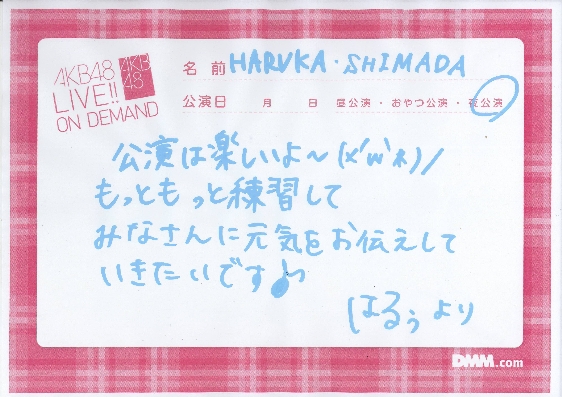 AKB48
LIVE!!
ON DEMAND
AKB
48
名前 HARUKA・SHIMADA
公演日 月 日 昼公演・おやつ公演・夜公演
公演は楽しいよ～(*'ω'*)/
もっともっと練習して
みなさんに元気をお伝えして
いきたいです♪
はるぅより
DMM.com